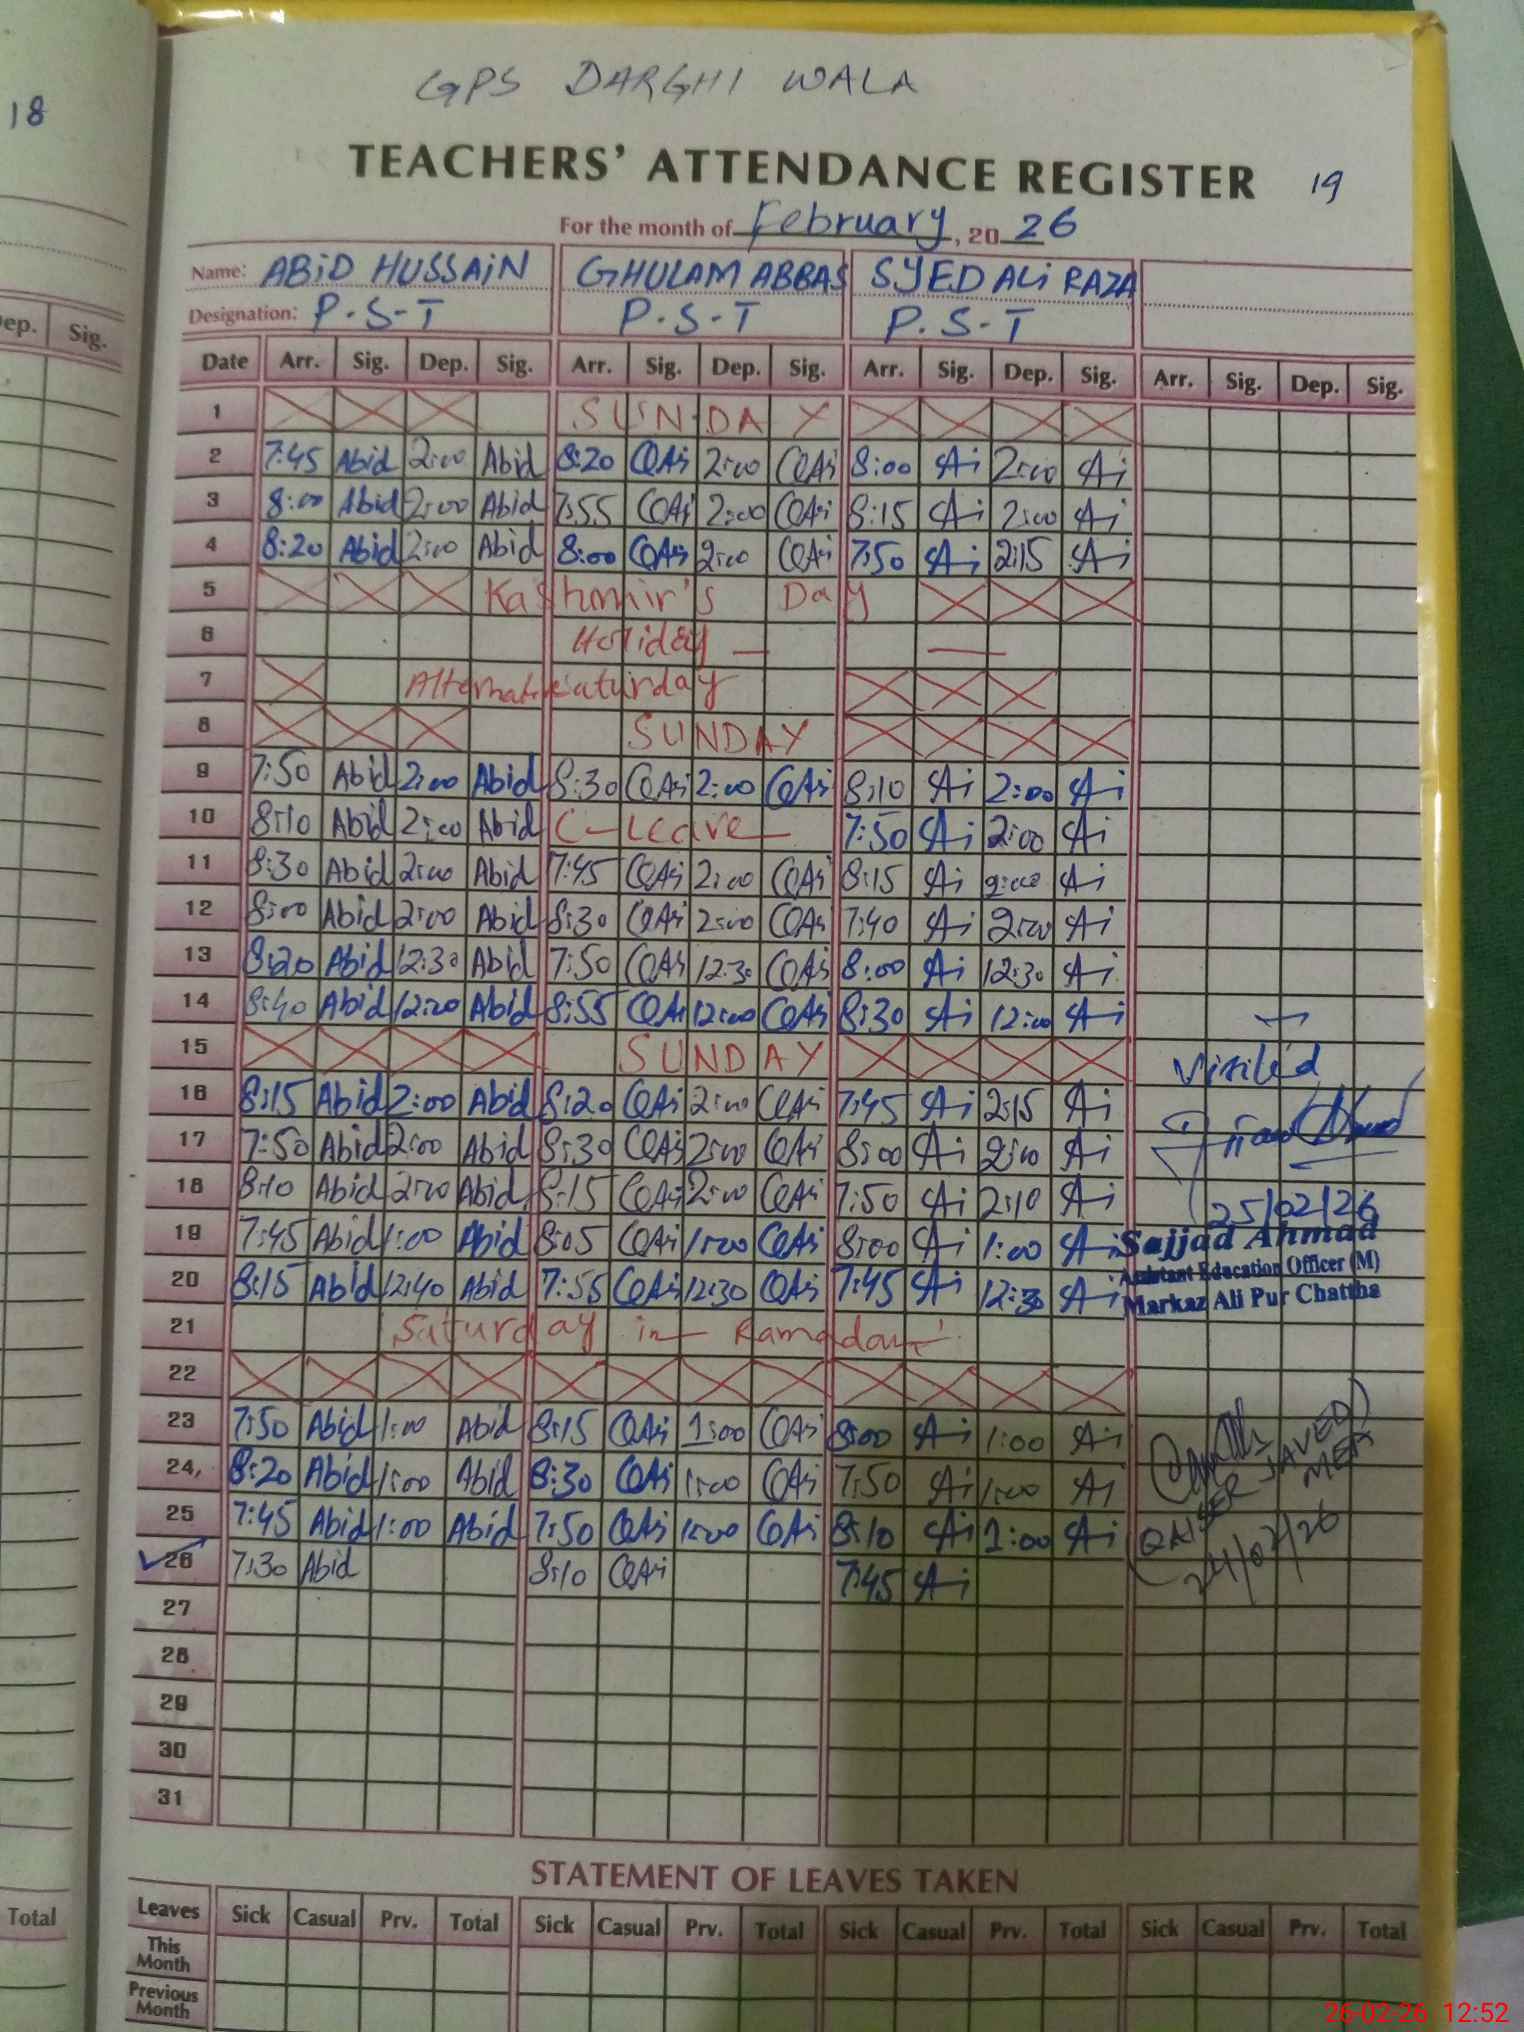 18
GPS DARGHI WALA
TEACHERS' ATTENDANCE REGISTER 19
For the month of February, 2026
Name: ABiD HUSSAiN GHULAM ABBAS SYED ALi RAZA
Designation: P.S-T P.S-T P.S-T
Dep. Sig.
Date Arr. Sig. Dep. Sig. Arr. Sig. Dep. Sig. Arr. Sig. Dep. Sig. Arr. Sig. Dep. Sig.
1 SUNDAY
2 7:45 Abid 2:00 Abid 8:20 2:00 8:00 2:00
3 8:00 Abid 2:00 Abid 7:55 2:00 8:15 2:00
4 8:20 Abid 2:00 Abid 8:00 2:00 7:50 2:15
5 Kashmir's Day
6 Holiday
7 Alternate Saturday
8 SUNDAY
9 7:50 Abid 2:00 Abid 8:30 2:00 8:10 2:00
10 8:10 Abid 2:00 Abid C-Leave 7:50 2:00
11 8:30 Abid 2:00 Abid 7:45 2:00 8:15 2:00
12 8:00 Abid 2:00 Abid 8:30 2:00 7:40 2:00
13 8:20 Abid 12:30 Abid 7:50 12:30 8:00 12:30
14 8:40 Abid 12:00 Abid 8:55 12:00 8:30 12:00
15 SUNDAY
16 8:15 Abid 2:00 Abid 8:20 2:00 7:45 2:15
17 7:50 Abid 2:00 Abid 8:30 2:00 8:00 2:00
18 8:10 Abid 2:00 Abid 8:15 2:00 7:50 2:10
19 7:45 Abid 1:00 Abid 8:05 1:00 8:00 1:00
20 8:15 Abid 12:40 Abid 7:55 12:30 7:45 12:30
21 Saturday in Ramadan
22
23 7:50 Abid 1:00 Abid 8:15 1:00 8:00 1:00
24 8:20 Abid 1:00 Abid 8:30 1:00 7:50 1:00
25 7:45 Abid 1:00 Abid 7:50 1:00 8:10 1:00
26 7:30 Abid 8:10 7:45
27
28
29
30
31
Visited
25/02/26
Sajjad Ahmad
Assistant Education Officer (M)
Markaz Ali Pur Chattha
(QAISER JAVED)
MEA
24/02/26
STATEMENT OF LEAVES TAKEN
Total
Leaves Sick Casual Prv. Total Sick Casual Prv. Total Sick Casual Prv. Total Sick Casual Prv. Total
This Month
Previous Month
26-02-26 12:52